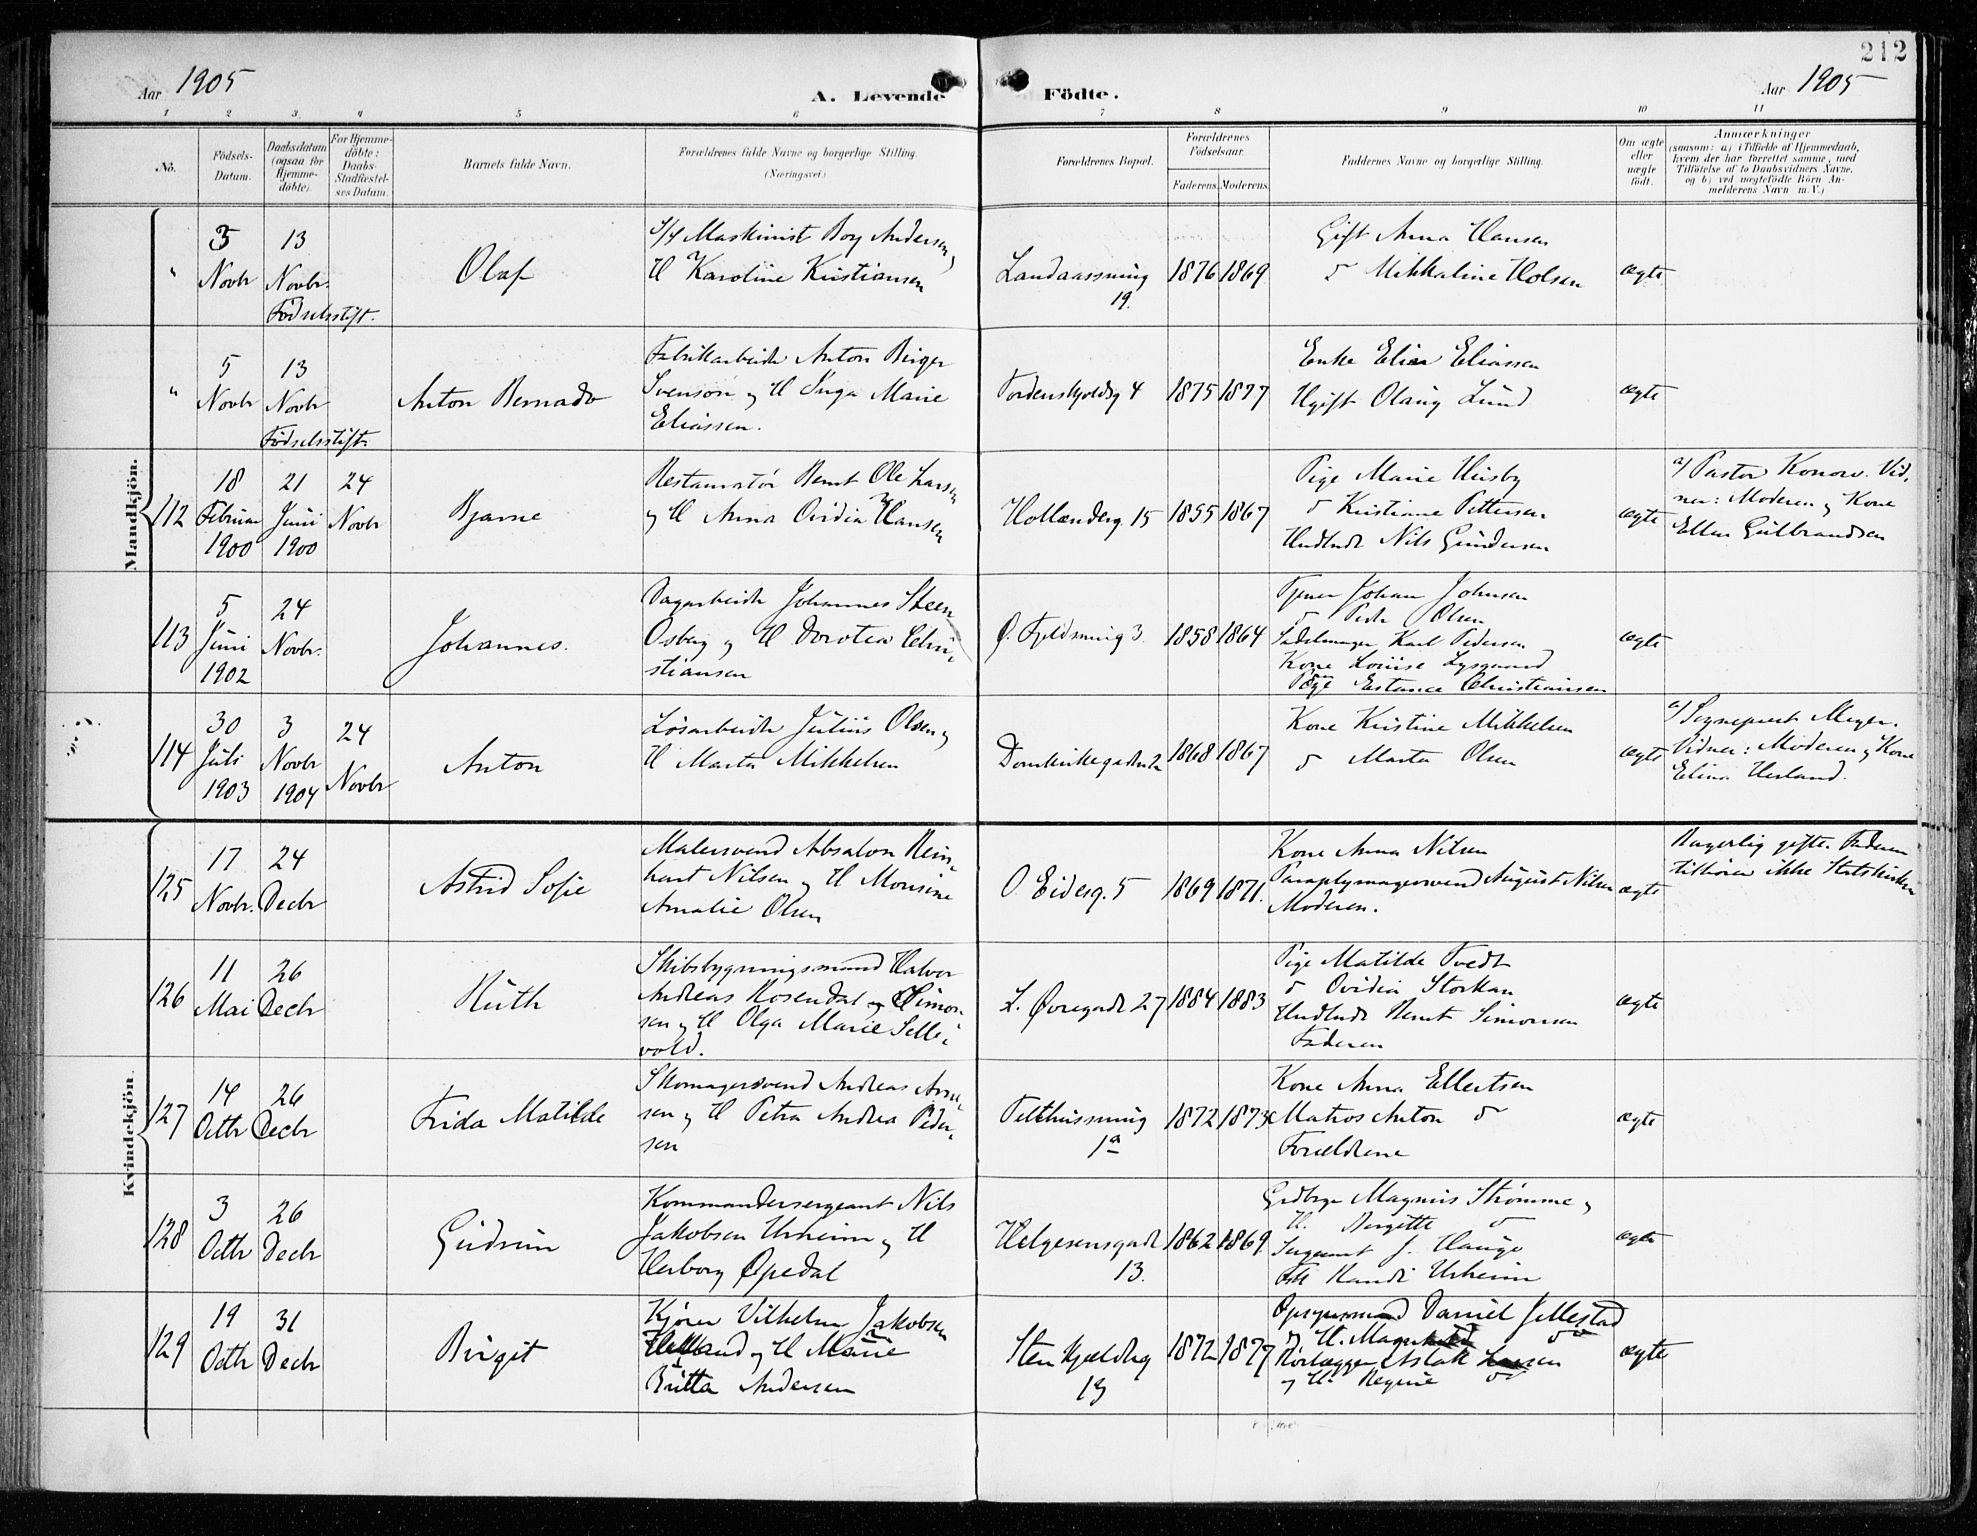 212
Aar 1905
A. Levende Födte.
Aar 1905
1 2 3 4 5 6 7 8 9 10 11
No.
Födsels-Datum.
Daabsdatum (ogsaa for Hjemmedöbte).
For Hjemmedöbte: Daabs Stadfæstelses Datum.
Barnets fulde Navn.
Forældrenes fulde Navne og borgerlige Stilling. (Næringsvei)
Forældrenes Bopæl.
Forældrenes Födselsaar.
Faderens. Moderens.
Faddernes Navne og borgerlige Stilling.
Om ægte eller uægte födt.
Anmærkninger
(saasom: a) i Tilfælde af Hjemmedaab, hvem der har forrettet samme, med Tilföielse af to Daabsvidners Navne, og b) ved uægtefödte Börn Anmelderens Navn m. V.)
Mandkjön.
" 5 Novbr 13 Novbr. Fødselsstift.
Olaf
S/s Maskinist Boy Andersen,
H Karoline Kristiansen
Landaassmug 19.
1876 1869
Gift Anna Hansen
d Mikkaline Holsen
ægte
" 5 Novbr 13 Novbr Fødselsstift.
Anton Bernado
Fabrikarbeide Anton Birger
Svenson og H Inga Marie
Eliassen.
Tordenskjoldsg 4
1875 1877
Enke Elisa Eliassen
Ugift Olaug Lund
ægte
112 18 Februar 1900 21 Juni 1900 24 Novbr
Bjarne
Restauratør Bernt Ole Larsen
og H Anna Ovidia Hansen
Hollænderg. 15
1855 1867
Pige Marie Husby
d Kristiane Pettersen
Hndlnde Nils Gundersen
ægte
a) Pastor Konow. Vid-
ner: Moderen og Kone
Ellen Gulbrandsen
113 5 Juni 1902 24 Novbr.
Johannes.
Dagarbeide Johannes Steen
Osberg og H Dorotea Chri-
stiansen
Ø. Fjeldsmug 3.
1858 1864
Tjener Johan Johnsen
d Peder Olsen
Sadelmager Karl Pedersen og
Kone Louise Lysgaard
Pige Estance Christiansen
ægte
114 30 Juli 1903 3 Novbr 1904 24 Novbr
Anton
Løsarbeide Julius Olsen og
H Marta Mikkelsen
Domkirkegaden 2
1868 1867
Kone Kristine Mikkelsen
d Marta Olsen
ægte
a) Sogneprest Meyer.
Vidner: Moderen og Kone
Elina Herland.
Kvindekjön.
125 17 Novbr. 24 Decbr
Astrid Sofie
Malersvend Absalon Rein-
hart Nilsen og H Monsine
Amalie Olsen
O. Eidesg. 5
1869 1871.
Kone Anna Nilsen
Paraplymagersvend August Nilsen
Moderen.
ægte
Borgerlig gifte. Faderen
tilhører ikke Statskirken
126 11 Mai 26 Decbr
Ruth
Skibsbygningsmand Halvor
Andreas Rosendal Simon-
sen og H Olga Marie Selle-
vold.
L. Øvregade 27
1884 1883
Pige Matilde Tvedt
d Ovidia Storkan
Hndlnde Bernt Simonsen
Faderen
ægte
127 14 Octbr 26 Decbr
Frida Matilde
Skomagersvend Andreas Arne-
sen og H Petra Andrea Peder-
sen
Telthussmug 1a
1872 1873
Kone Anna Ellertsen
Matros Anton d
Forældrene
ægte
128 3 Octbr 26 Decbr
Gudrun
Kommandersergeant Nils
Jakobsen Urheim og H
Herborg Opedal
Helgesensgade 13.
1862 1869
Grdbrger Magnus Strømme og
H. Birgitte d
Sergeant J. Hauge
Frk Randi Urheim
ægte
129 19 Octbr 31 Decbr
Birgit
Kjører Vilhelm Jakobsen
Helland og H Marie
Britta Andersen
Stenkjelderg 13
1872 1877
Opsynsmand Daniel Jellestad
Rørlægger Aslak Larsen
og H. Regine
ægte